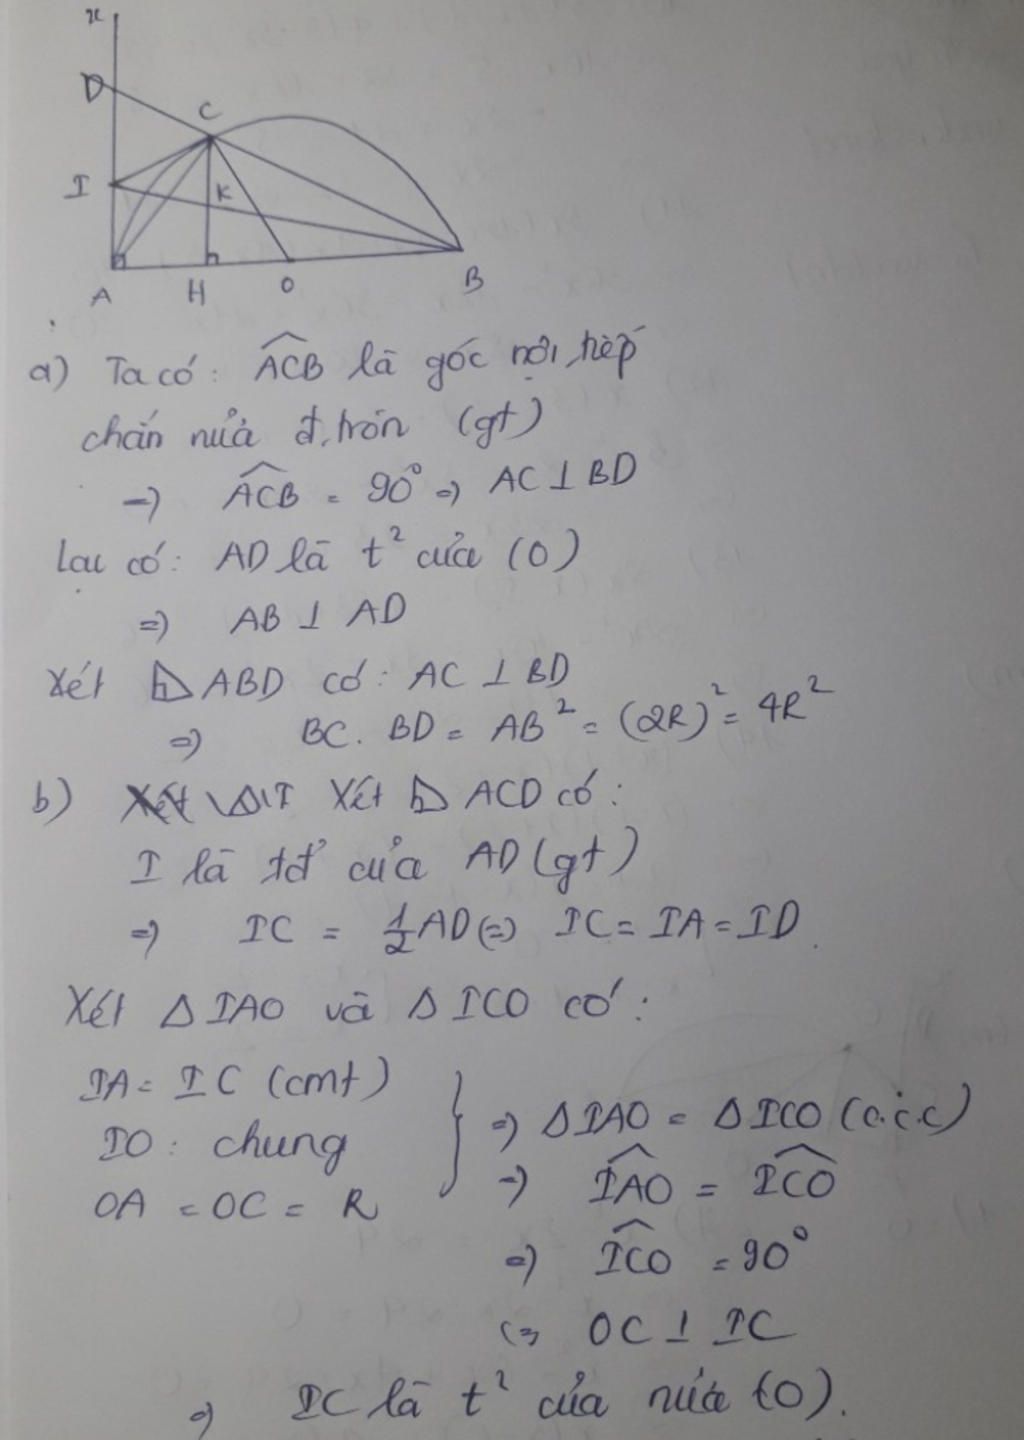 x
D
C
I
K
A
H
O
B
a) Ta có: ACB là góc nội tiếp
chắn nửa đ.tròn (gt)
=> ACB = 90° => AC ⊥ BD
Lại có: AD là t² của (O)
=> AB ⊥ AD
Xét ⊿ ABD có: AC ⊥ BD
=> BC. BD = AB² = (2R)² = 4R²
b) Xét ⊿ ACD có:
I là tđ' của AD (gt)
=> IC = 1/2 AD (=> IC = IA = ID.
Xét Δ IAO và Δ ICO có:
IA = IC (cmt)
IO: chung
OA = OC = R
=> Δ IAO = Δ ICO (c.c.c)
=> IAO = ICO
=> ICO = 90°
<=> OC ⊥ IC
=> IC là t² của nửa (O).